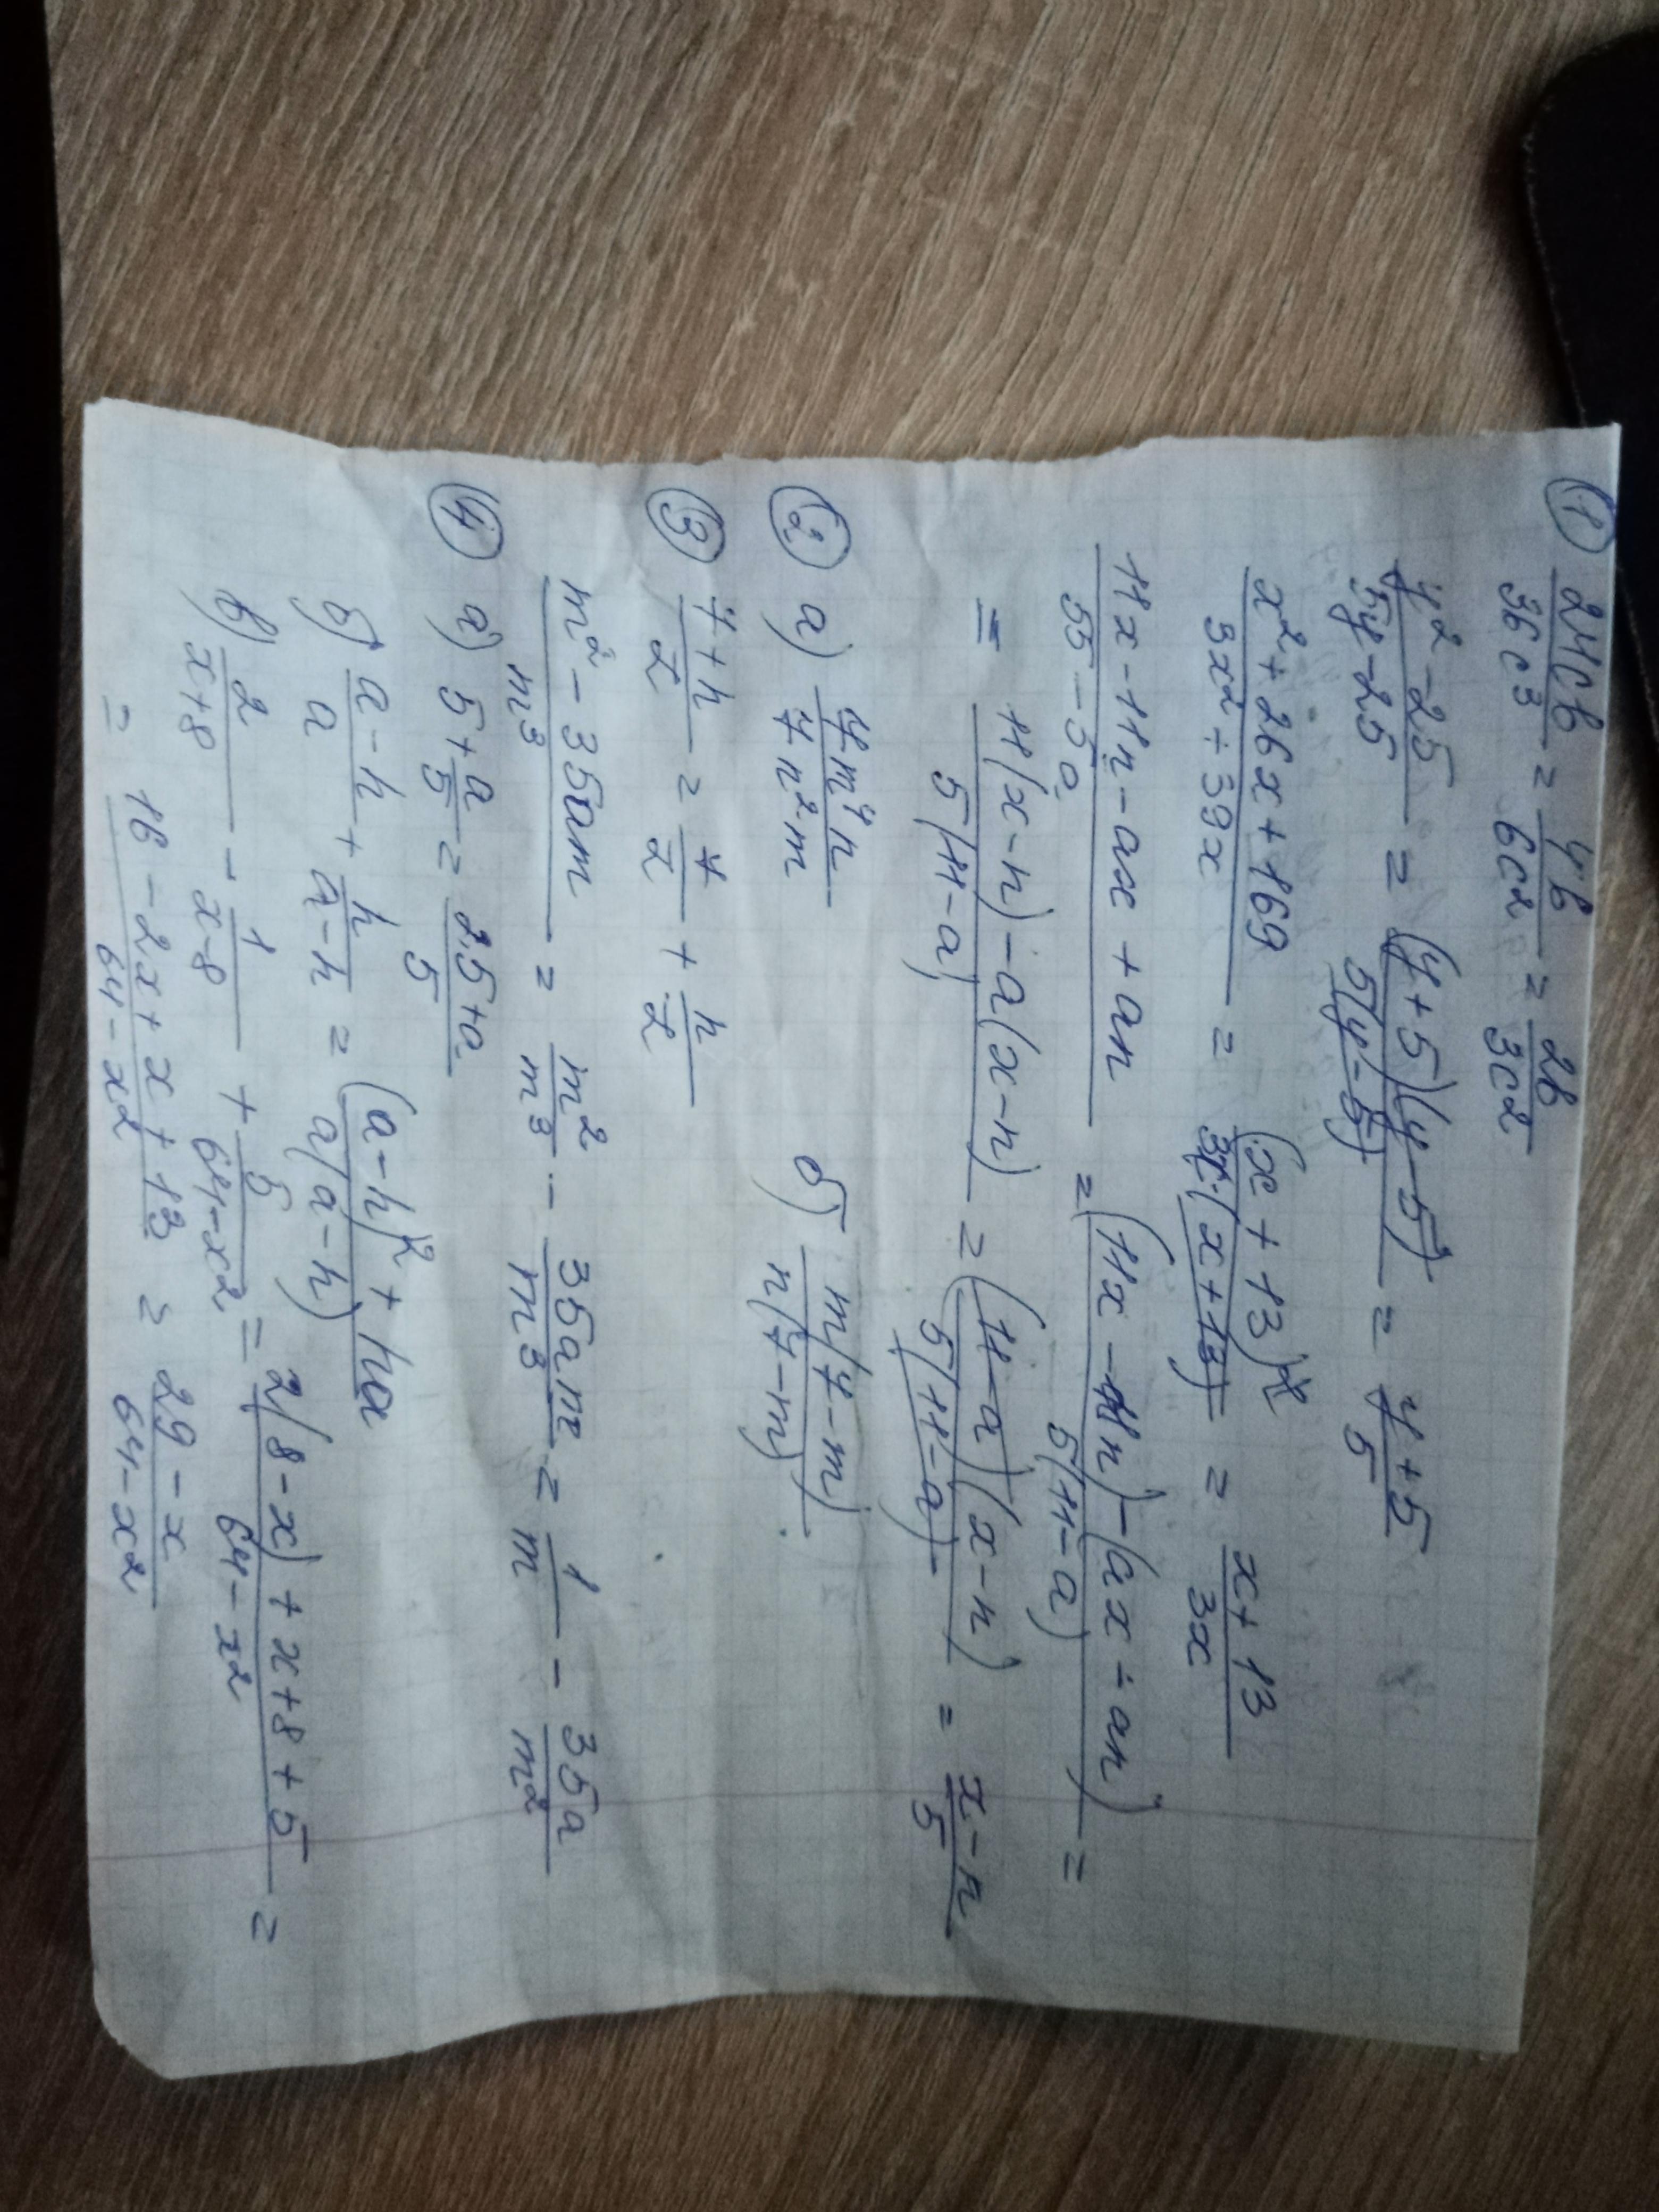 ① 24cb/36c³ = 4b/6c² = 2b/3c²
y²-25/5y-25 = (y+5)(y-5)/5(y-5) = y+5/5
x²+26x+169/3x²+39x = (x+13)²/3x(x+13) = x+13/3x
11x-11n-ax+an/55-5a = (11x-11n)-(ax-an)/5(11-a) =
= 11(x-n)-a(x-n)/5(11-a) = (11-a)(x-n)/5(11-a) = x-n/5
② а) 4m⁴n/4n²m б) m(4-m)/n(4-m)
③ 4+n/z = 4/z + n/z
m²-35am/m³ = m²/m³ - 35am/m³ = 1/m - 35a/m²
④ а) 5+a/5 = 25+a/5
б) a-h/a + h/a-h = (a-h)²+ha/a(a-h)
в) 2/x+8 - 1/x-8 + 5/64-x² = 2(8-x)+x+8+5/64-x² =
= 16-2x+x+13/64-x² = 29-x/64-x²